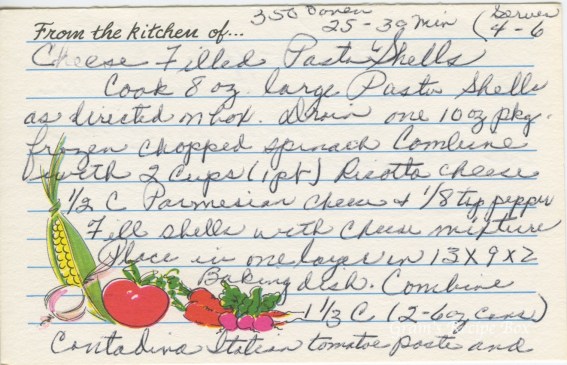 From the kitchen of...
350° oven
25 - 30 min (Serves
4 - 6
Cheese Filled Pasta Shells
Cook 8 oz. large Pasta Shells
as directed on box. Drain one 10 oz pkg.
frozen chopped spinach Combine
with 2 cups (1 pt) Ricotta cheese
1/2 C Parmesian cheese + 1/8 tsp pepper
Fill shells with cheese mixture
Place in one layer in 13 X 9 X 2
Baking dish. Combine
1 1/3 C (2-6 oz cans)
Gram's Recipe Box
Contadina Italian tomatoe paste and